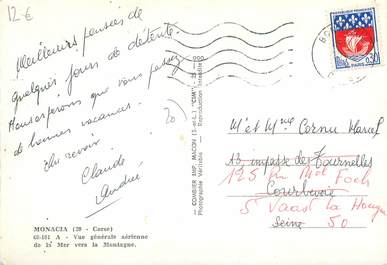 12 €
Meilleures pensées de
quelques jours de détente.
Nous espérons que vous passez
de bonnes vacances.
Au revoir
Claude
André
20
MONACIA (20 - Corse)
60-101 A - Vue générale aérienne
de la Mer vers la Montagne.
COMBIER IMP. MACON (S.-et-L.) "CIM"
Photographie Véritable - Reproduction Interdite
PARIS
0,30
M' et Mme Cornu Marcel
12, impasse de Tournelles
125 Rue Mal Foch
Courbevoie
St Vaast la Hougue
Seine 50